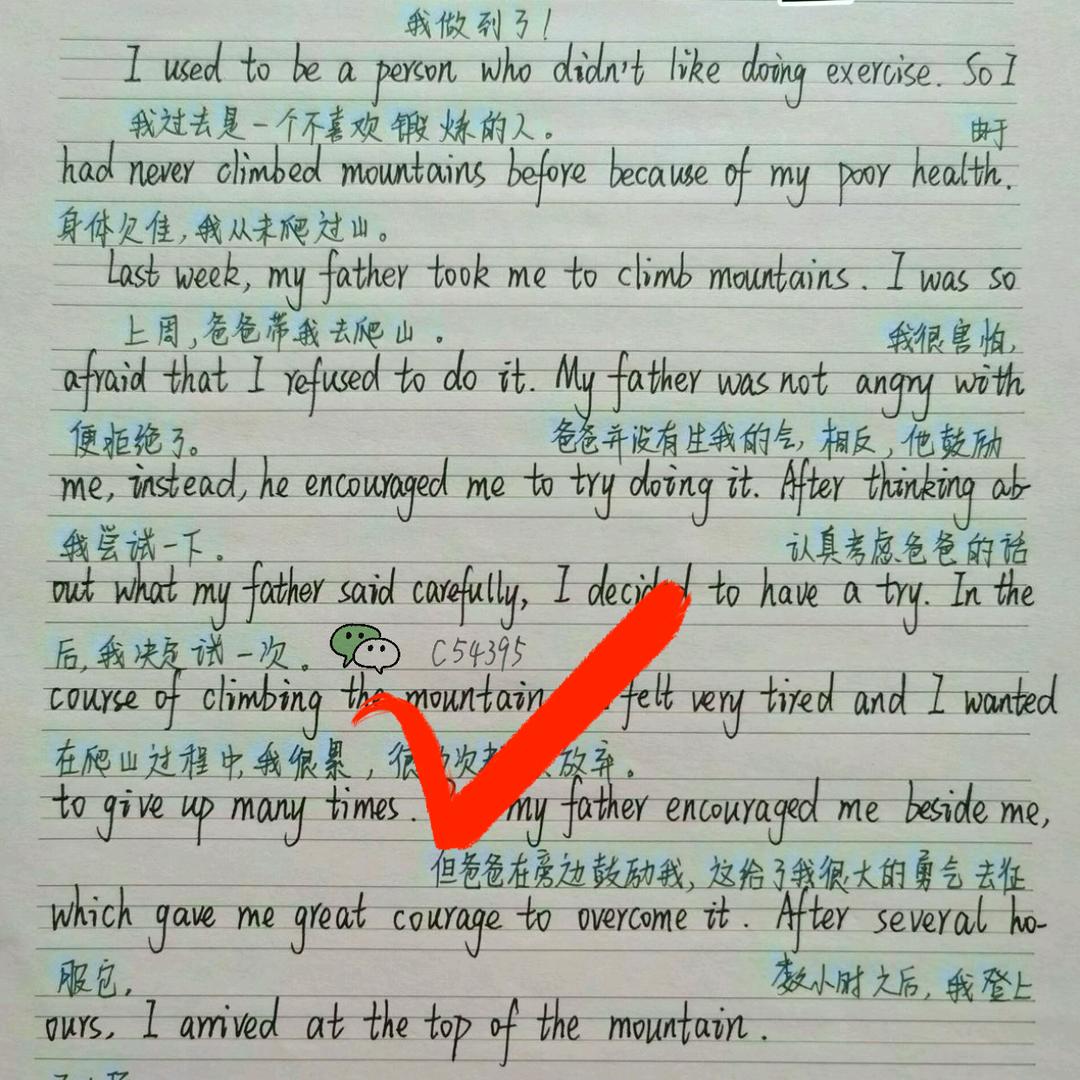 我做到了!
I used to be a person who didn't like doing exercise. So I
我过去是一个不喜欢锻炼的人。 由于
had never climbed mountains before because of my poor health.
身体欠佳,我从未爬过山。
Last week, my father took me to climb mountains. I was so
上周,爸爸带我去爬山。 我很害怕,
afraid that I refused to do it. My father was not angry with
便拒绝了。 爸爸并没有生我的气,相反,他鼓励
me, instead, he encouraged me to try doing it. After thinking ab-
我尝试一下。 认真考虑爸爸的话
out what my father said carefully, I decided to have a try. In the
后,我决定试一次。 C54395
course of climbing the mountain felt very tired and I wanted
在爬山过程中,我很累,很 次 放弃。
to give up many times. my father encouraged me beside me,
但爸爸在旁边鼓励我,这给了我很大的勇气去征
which gave me great courage to overcome it. After several ho-
服它。 数小时之后,我登上
ours, I arrived at the top of the mountain.